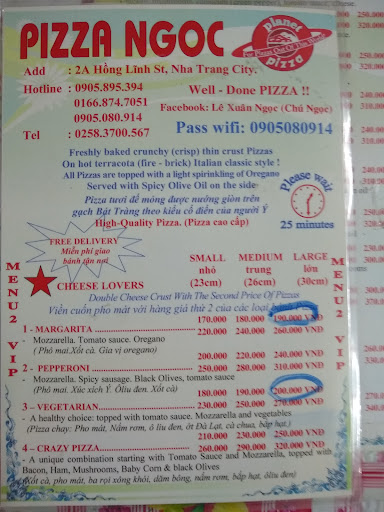 PIZZA NGOC
Planet
Pizza
Add : 2A Hồng Lĩnh St, Nha Trang City.
Hotline : 0905.895.394
0166.874.7051
0905.080.914
Well - Done PIZZA !!
Facebook: Lê Xuân Ngọc (Chú Ngọc)
Tel : 0258.3700.567
Pass wifi: 0905080914
Freshly baked crunchy (crisp) thin crust Pizzas
On hot terracota (fire - brick) Italian classic style !
All Pizzas are topped with a light spirinkling of Oregano
Served with Spicy Olive Oil on the side
Pizza tươi đế mỏng được nướng giòn trên
gạch Bát Tràng theo kiểu cổ điển của người Ý
High-Quality Pizza. (Pizza cao cấp)
Please wait
25 minutes
FREE DELIVERY
Miễn phí giao
bánh tận nơi
SMALL MEDIUM LARGE
nhỏ trung lớn
(23cm) (26cm) (30cm)
MENU2 VIP
MENU2 VIP
CHEESE LOVERS
Double Cheese Crust With The Second Price Of Pizzas
Viền cuốn phô mát với hàng giá thứ 2 của các loại
170.000 180.000 190.000 VNĐ
1 - MARGARITA 220.000 240.000 260.000 VNĐ
- Mozzarella. Tomato sauce. Oregano
( Phô mai.Xốt cà. Gia vị oregano)
200.000 220.000 240.000 VNĐ
2 - PEPPERONI 250.000 280.000 310.000 VNĐ
- Mozzarella. Spicy sausage. Black Olives, tomato sauce
(Phô mai. Xúc xích Ý. Ôliu đen. Xốt cà)
180.000 190.000 200.000 VNĐ
3 – VEGETARIAN 230.000 250.000 270.000 VNĐ
- A healthy choice: topped with tomato sauce. Mozzarella and vegetables
(Pizza chay: Pho mát, Nấm rơm, ô liu đen, ớt Đà Lạt, cà chua, bắp hạt.)
210.000 230.000 250.000 VNĐ
4 – CRAZY PIZZA 260.000 290.000 320.000 VNĐ
- A unique combination starting with Tomato Sauce and Mozzarella, topped with
Bacon, Ham, Mushrooms, Baby Corn & black Olives
(Xốt cà, pho mát, ba rọi xông khói, dăm bông, nấm rơm, bắp hạt, ôliu đen)